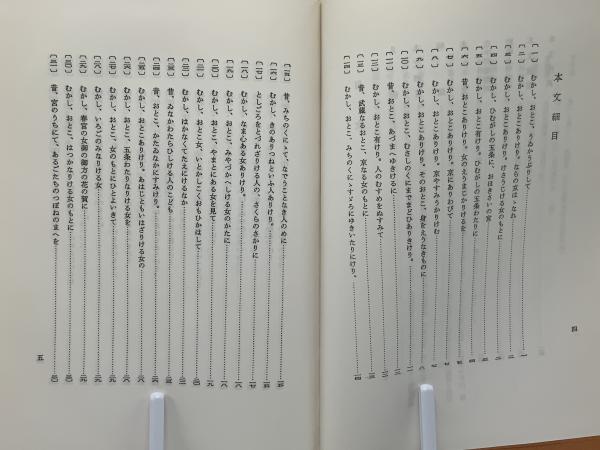 本文細目
〔一〕 むかし、おとこ、うゐかうぶりして
〔二〕 むかし、おとこありけり。ならの京はゝなれ
〔三〕 むかし、おとこありけり。けさうじける女のもとに
〔四〕 むかし、ひむがしの五条に、おほきさいの宮
〔五〕 むかし、おとこ有けり。ひむがしの五条わたりに
〔六〕 昔、おとこありけり。女のえうまじかりけるを
〔七〕 むかし、おとこありけり。京にありわびて
〔八〕 むかし、おとこありけり。京やすみうかりけむ
〔九〕 むかし、おとこありけり。そのおとこ、身をえうなきものに
〔一〇〕 むかし、おとこ、むさしのくにまでまどひありきけり。
〔一一〕 昔、おとこ、あづまへゆきけるに
〔一二〕 むかし、おとこ有けり。人のむすめをぬすみて
〔一三〕 昔、武蔵なるおとこ、京なる女のもとに
〔一四〕 むかし、おとこ、みちのくにゝすゞろにゆきいたりにけり。
四
〔一五〕 昔、みちのくにゝて、なでうことなき人のめに
〔一六〕 むかし、きのありつねといふ人ありけり。
〔一七〕 としごろをとづれざりける人の、さくらのさかりに
〔一八〕 むかし、なま心ある女ありけり。
〔一九〕 むかし、おとこ、みやづかへしける女のかたに
〔二〇〕 むかし、おとこ、やまとにある女を見て
〔二一〕 むかし、おとこ女、いとかしこくおもひかはして
〔二二〕 むかし、はかなくてたえにけるなか
〔二三〕 昔、ゐなかわたらひしける人のこども
〔二四〕 昔、おとこ、かたゐなかにすみけり。
〔二五〕 むかし、おとこありけり。あはじともいはざりける女の
〔二六〕 むかし、おとこ、五条わたりなりける女を
〔二七〕 昔、おとこ、女のもとにひとよいきて
〔二八〕 むかし、いろごのみなりける女
〔二九〕 むかし、春宮の女御の御方の花の賀に
〔三〇〕 むかし、おとこ、はつかなりける女のもとに
〔三一〕 昔、宮のうちにて、あるごたちのつぼねのまへを
五